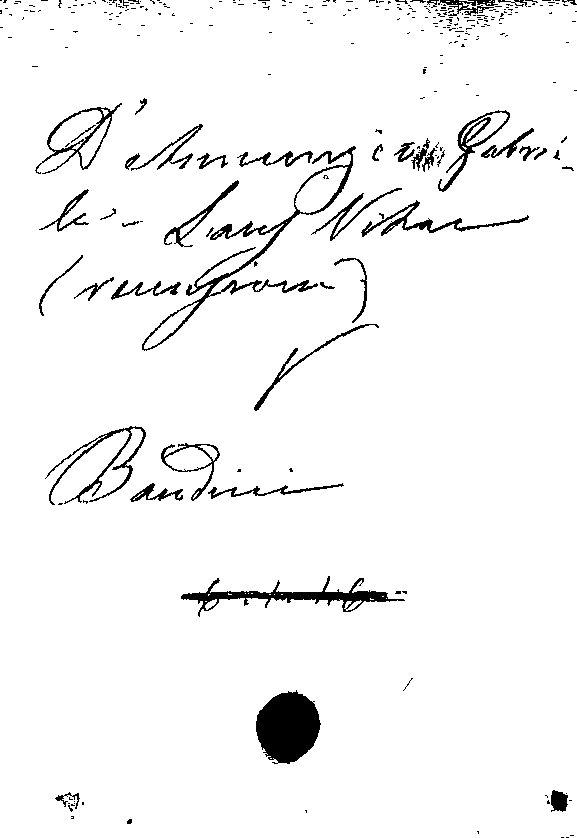 D'Annunzio Gabrie-
le - Laus Vitae
(recensione)
V
Bandini